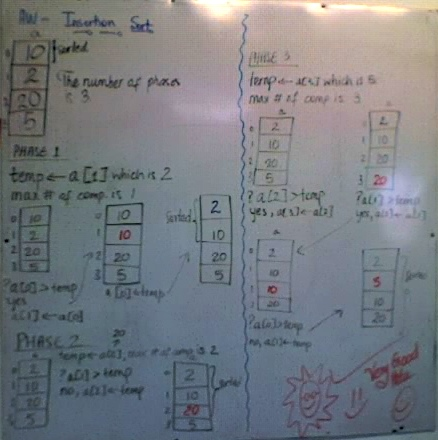 AW - Insertion Sort
a
0 10 sorted
1 2
2 20
3 5
The number of phases
is 3
PHASE 1
temp ← a[1] which is 2
max # of comp. is 1
0 10
1 2
2 20
3 5
?a[0] > temp
yes
a[1] ← a[0]
0 10
1 10
2 20
3 5
a[0] ← temp
sorted
2
10
20
5
PHASE 2
20
temp ← a[2], max # of comp is 2
a
0 2
1 10
2 20
3 5
?a[1] > temp
no, a[2] ← temp
0 2
1 10
2 20
3 5
sorted
PHASE 3
temp ← a[3] which is 5
max # of comp is 3
a
0 2
1 10
2 20
3 5
?a[2] > temp
yes, a[3] ← a[2]
a
0 2
1 10
2 20
3 20
?a[1] > temp
yes, a[2] ← a[1]
a
0 2
1 10
2 10
3 20
?a[0] > temp
no, a[1] ← temp
2
5
10
20
sorted
Very Good